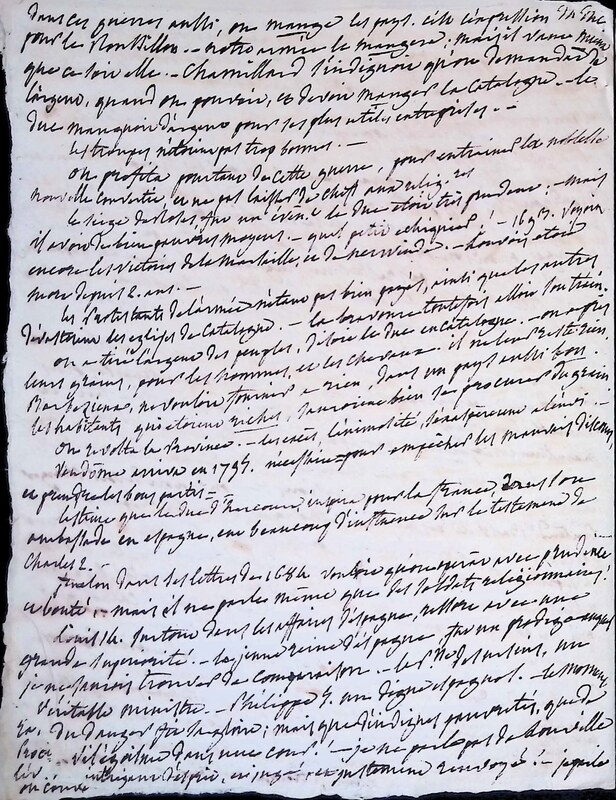 dans ces guerres aussi, on mange les pays. cette expression
pour le Roussillon. - notre armée le mangera; mais il vaut mieux
que ce soit elle. - Chamillard s'indignoit qu'on demandat de
l'argent, quand on pouvoit, et devoit manger la Catalogne. - le
duc manquoit d'argent pour ses plus utiles entreprises. -
les troupes n'étoient pas trop bonnes. -
on profita pourtant de cette guerre, pour entrainer la noblesse
nouvelle convertie, et ne pas laisser de chefs aux relig.res
le siege de Roses, fut un évén.t le duc étoit très prudent; - mais
il avoit de bien pauvres moyens. - quel petit échiquier! - 1693. voyons
encore les victoires de la Marsaille, et de nerwinde. - Louvois étoit
mort depuis 2. ans. -
les Protestants de l'armée n'étant pas bien payés, ainsi que les autres
dévastoient les eglises de Catalogne. - la bravoure toutefois alloit son train.
on a tiré l'argent des peuples, disoit le duc en Catalogne. - on a pris
leurs grains, pour les hommes, et les chevaux. il ne leur reste rien
Barbezieux, ne voulut fournir rien, dans un pays aussi bon.
les habitants, qui étoient riches, sauroient bien se procurer du grain
on révolta la Province. - les excès, l'animosité,
Vendôme arriva en 1795. nécessaire pour empêcher les mauvais discours,
et prendre les bons partis -
l'estime que le duc d'Harcourt inspira pour la france dans son
ambassade en espagne, eut beaucoup d'influence sur le testament de
Charles 2. -
fenelon dans ses lettres de 1684. vouloit qu'on opérat avec prudence
et bonté, - mais il ne parle même que des soldats religionnaires!
Louis 14. surtout dans les affaires d'espagne, ressort avec une
grande superiorité. - la jeune reine d'espagne, fut un prodige auquel
je ne saurois trouver de comparaison. - la P.sse des ursins, un
véritable ministre. - Philippe 5. un digne espagnol. - le moment
du danger fut sa gloire; mais que d'indignes pauvretés, que de
vil égoïsme dans une cour! - je ne parle pas de
intrigant d'esprit, et jugé, et justement renvoyé! - je parle